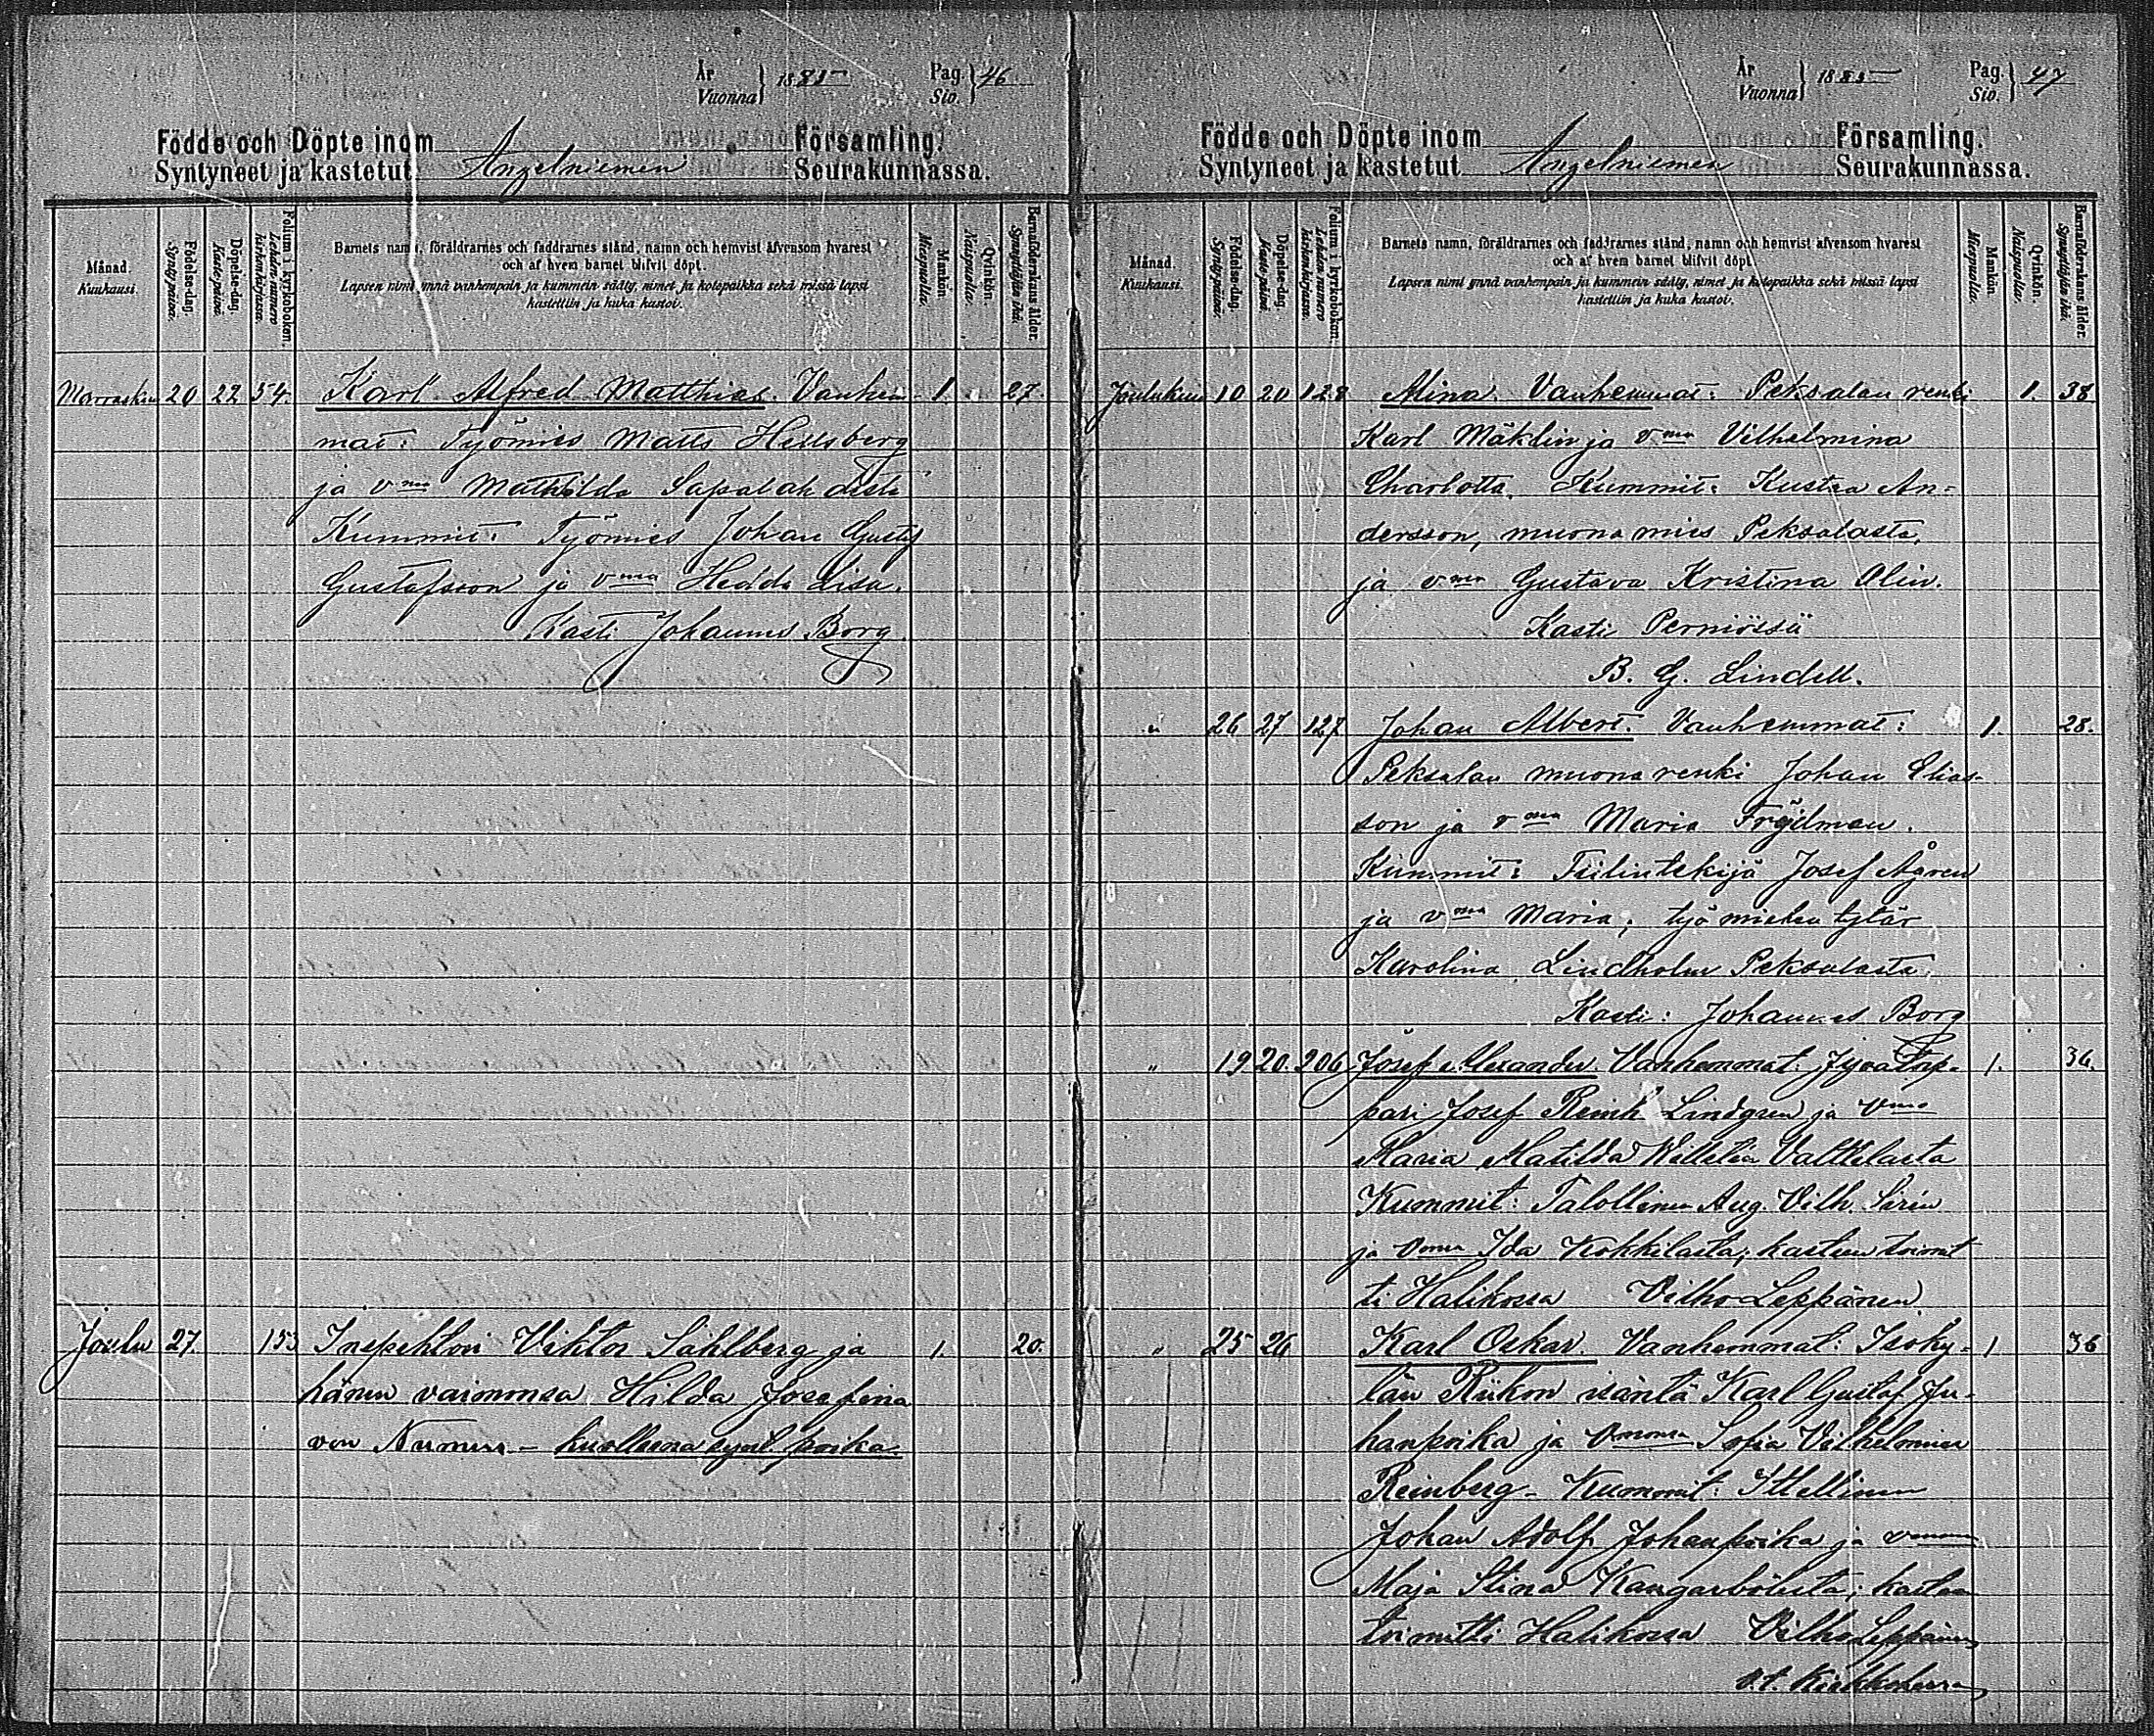 År
Vuonna } 1885
Pag.
Siv. } 46
Födde och Döpte inom
Syntyneet ja kastetut Angelniemen
Församling.
Seurakunnassa.
Månad.
Kuukausi.
Födelse-dag.
Syntypäivä.
Döpelse-dag.
Kaste-päivä.
Folium i kyrkoboken.
Lehden numero kirkonkirjassa.
Barnets namn, föräldrarnes och faddrarnes stånd, namn och hemvist äfvensom hvarest
och af hvem barnet blifvit döpt.
Lapsen nimi ynnä vanhempain ja kummein sääty, nimet ja kotopaikka sekä missä lapsi
kastettiin ja kuka kastoi.
Mankön
Miespuolia.
Qvinkön.
Naispuolia.
Barnaföderskans ålder.
Synnyttäjän ikä.
Marraskuu 20 22 54. Karl Alfred Matthias. Vanhem- 1. 27.
mat: Työmies Matts Hellsberg
ja vmo Mathilda Sapalahdesta
Kummit: Työmies Johan Gustaf
Gustafsson ja vmo Hedda Lisa.
Kasti Johannes Borg
Joulu 27. 153 Inspehtori Viktor Sahlberg ja 1. 20.
hänen vaimonsa Hilda Josefina
von Numers - kuolleena synt. poika.
År
Vuonna } 1885
Pag.
Siv. } 47
Födde och Döpte inom
Syntyneet ja kastetut Angelniemen
Församling.
Seurakunnassa.
Månad.
Kuukausi.
Födelse-dag.
Syntypäivä.
Döpelse-dag.
Kaste-päivä.
Folium i kyrkoboken.
Lehden numero kirkonkirjassa.
Barnets namn, föräldrarnes och faddrarnes stånd, namn och hemvist äfvensom hvarest
och af hvem barnet blifvit döpt.
Lapsen nimi ynnä vanhempain ja kummein sääty, nimet ja kotopaikka sekä missä lapsi
kastettiin ja kuka kastoi.
Mankön
Miespuolia.
Qvinkön.
Naispuolia.
Barnaföderskans ålder.
Synnyttäjän ikä.
Joulukuu 10 20 128 Alina. Vanhemmat: Peksalan renki 1. 38
Karl Mäklin ja vmo Vilhelmina
Charlotta. Kummit: Kustaa An-
dersson, muonamies Peksalasta,
ja vmo Gustava Kristina Olin.
Kasti Perniössä
B. G. Lindell.
" 26 27 127 Johan Albert. Vanhemmat: 1. 28.
Peksalan muonarenki Johan Elias-
son ja vmo Maria Fröjdman.
Kummit: Tiilintekijä Josef Ågren
ja vmo Maria; työmiehen tytär
Karolina Lindholm Peksalasta.
Kasti: Johannes Borg
" 19 20. 206 Josef Alexander. Vanhemmat: 1. 36.
pari Josef Reinh. Lindgren ja Vmo
Maria Matilda Valttilasta
Kummit: Talollinen Aug. Vilh. Sirén
ja Vmo Ida Kokkilasta; kasteen toimit
ti Halikossa Vilho Leppänen
" 25 26 Karl Oskar. Vanhemmat: Isoky- 1 36
län Riikon isäntä Karl Gustaf Ju-
hanpoika ja Vmonsa Sofia Vilhelmina
Reinberg - Kummit: Itsellinen
Johan Adolf Johanpoika ja vmonsa
Maja Stina Kangarbölistä; kasteen
toimitti Halikossa Vilho Leppänen
v.t. Kirkkoherra